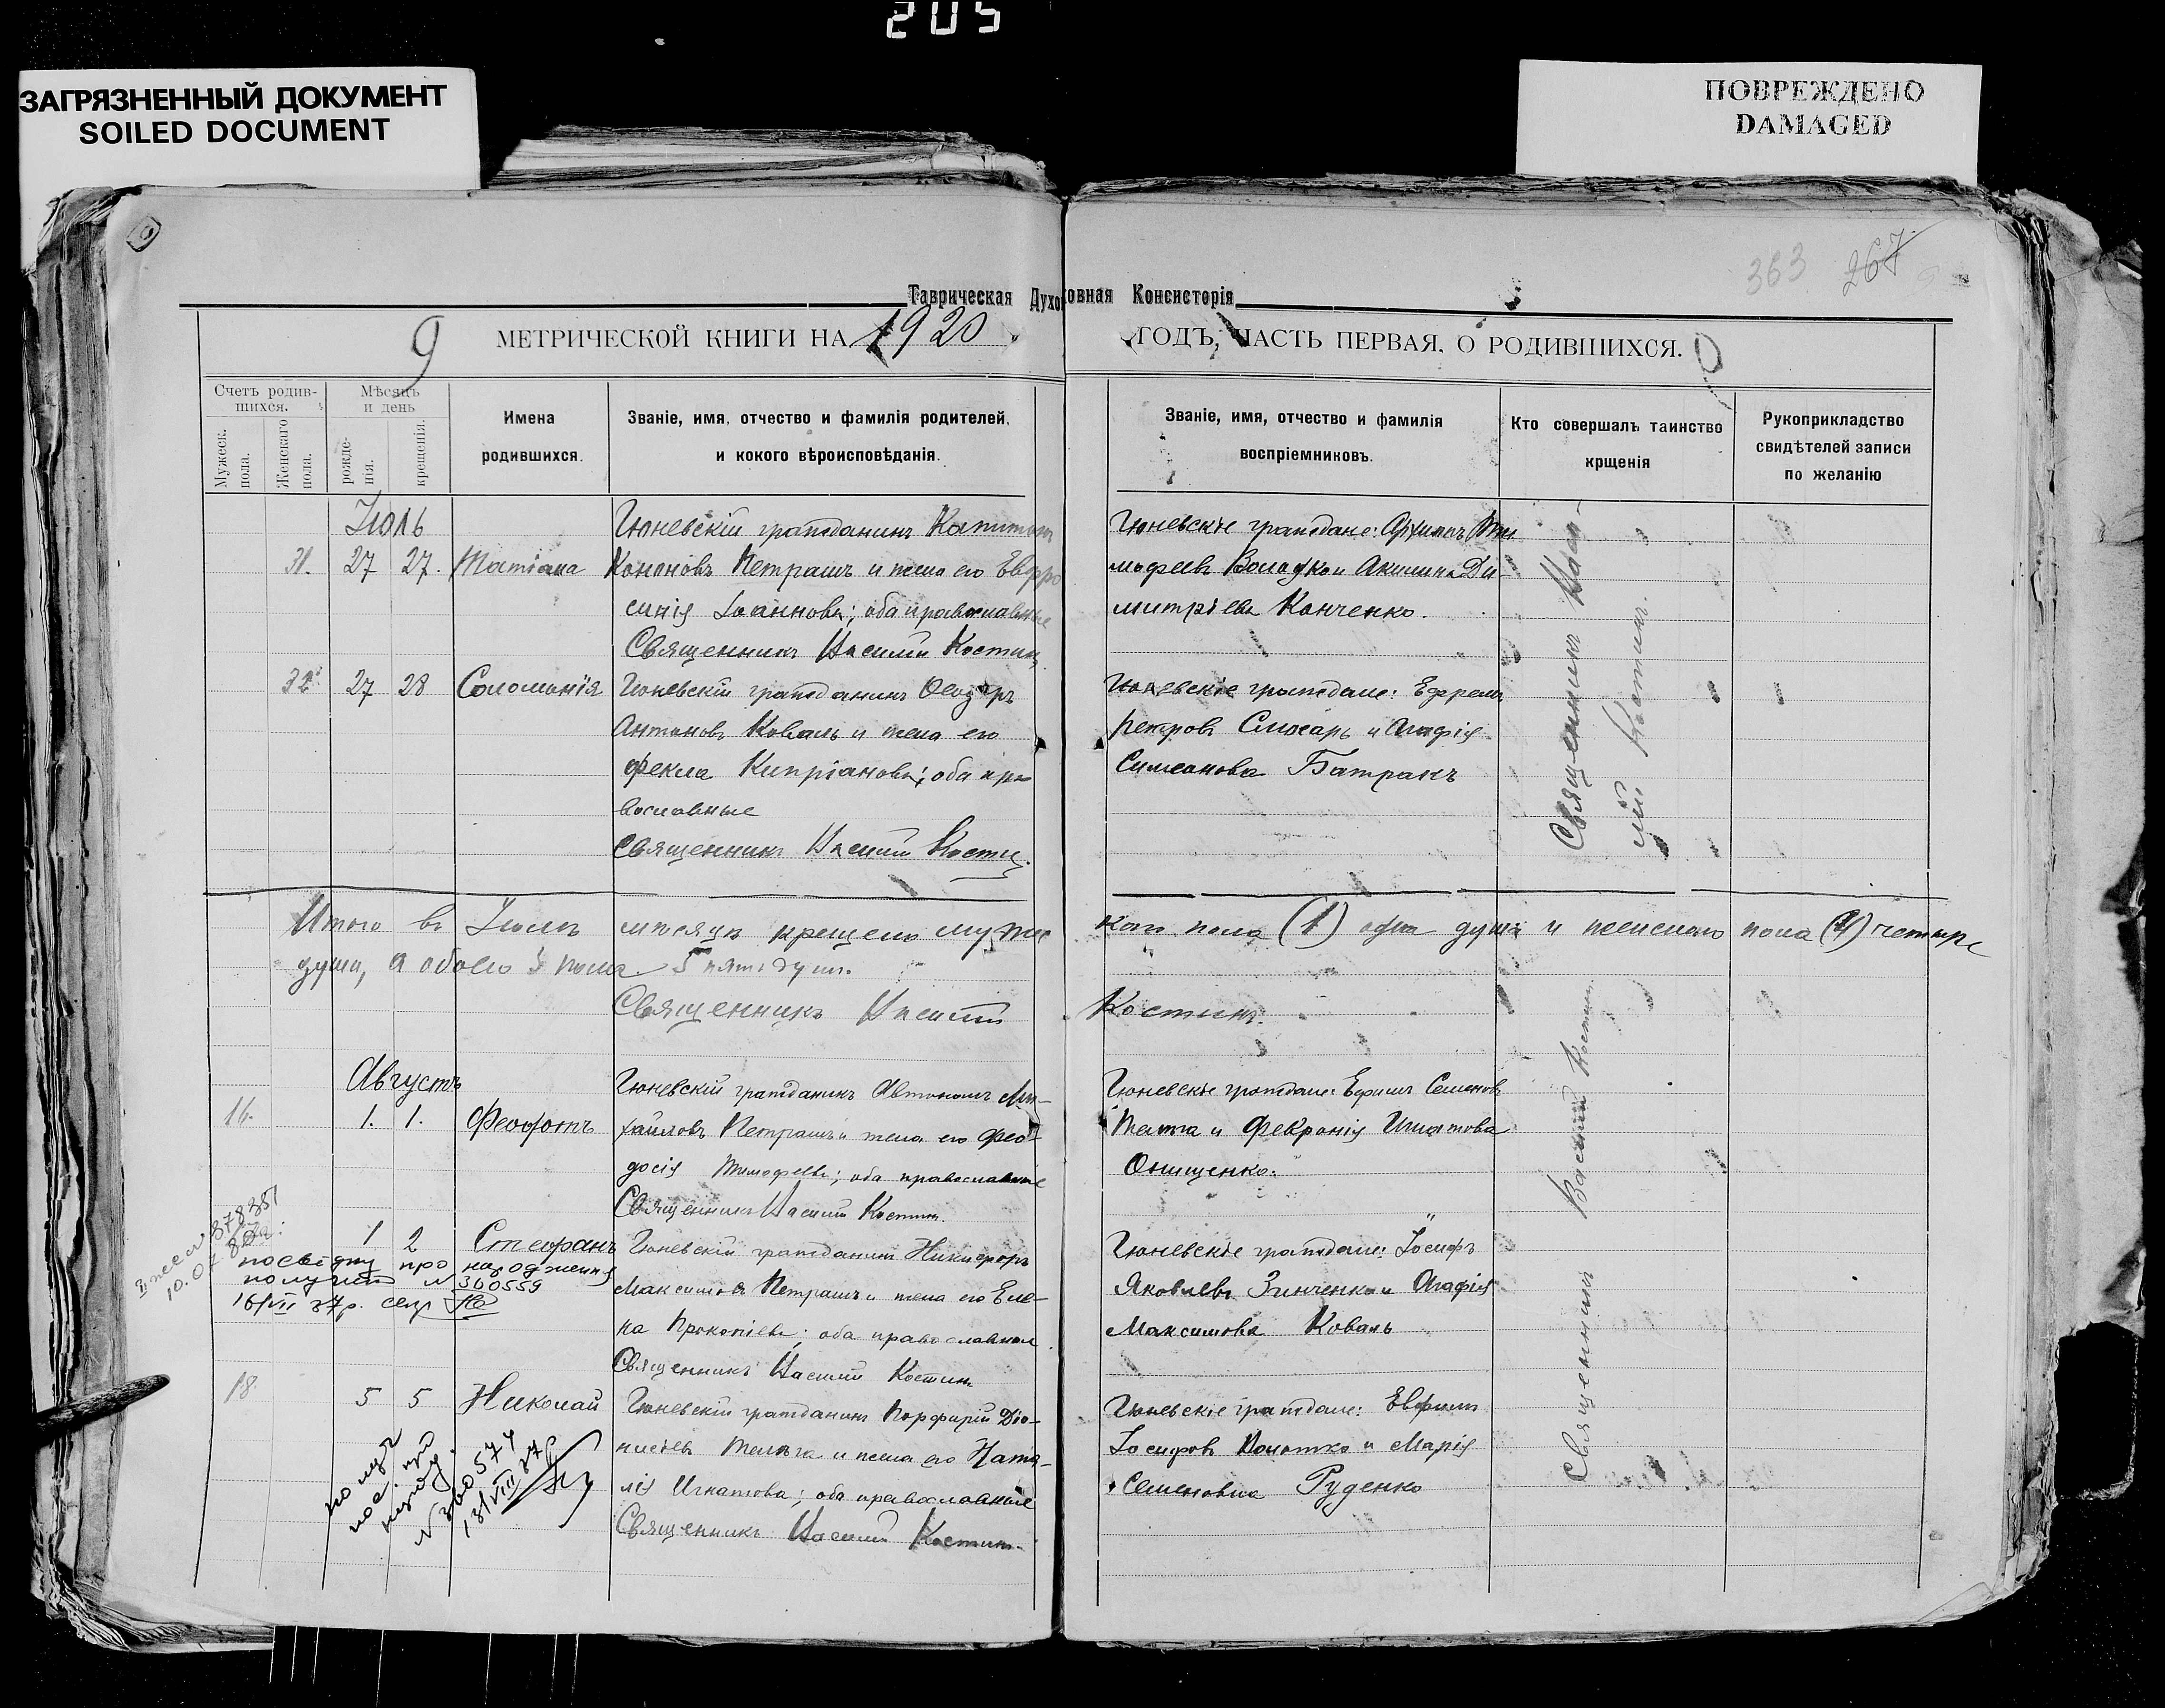 205
ЗАГРЯЗНЕННЫЙ ДОКУМЕНТ
SOILED DOCUMENT
ПОВРЕЖДЕНО
DAMAGED
363 267
Таврическая Духовная Консисторія
9 МЕТРИЧЕСКОЙ КНИГИ НА 1920
ГОДЪ, ЧАСТЬ ПЕРВАЯ, О РОДИВШИХСЯ.
Счетъ родив-
шихся.
Мужеск.
пола.
Женскаго
пола.
Мѣсяцъ
и день
рожде-
нія.
крещенія.
Имена
родившихся.
Званіе, имя, отчество и фамилія родителей,
и кокого вѣроисповѣданія.
Званіе, имя, отчество и фамилія
воспріемниковъ.
Кто совершалъ таинство
крщенія
Рукоприкладство
свидѣтелей записи
по желанію
Іюль
31. 27 27. Татіана
Гюневскій гражданинъ Капитонъ
Кононовъ Петрашъ и жена его Евфро
синія Іоаннова; оба православные
Священникъ Василій Костинъ
Гюневскіе граждане: Архипъ Ти
мофеевъ Волочко и Акилина Ди-
митріева Конченко.
32 27 28 Соломонія
Гюневскій гражданинъ Ѳеодоръ
Антоновъ Коваль и жена его
Фекла Кипріанова; оба пра
вославные
Священникъ Василій Костин
Гюневскіе граждане: Ефремъ
Петровъ Слюсарь и Агафія
Симеонова Батракъ
Священникъ Васи-
лій Костинъ.
Итого въ Іюлѣ мѣсяцѣ крещено мужс
кого пола (1) одна душа и женскаго пола (4) четыре
души, а обоего пола 5 пять душъ.
Священникъ Василій Костинъ.
Августъ
16. 1. 1. Феодотъ
Гюневскій гражданинъ Автономъ Ми-
хайловъ Петрашъ и жена его Фео-
досія Тимофеева; оба православные
Священникъ Василій Костинъ.
Гюневскіе граждане: Ефимъ Семеновъ
и Феврония Игнатова
Онищенко.
1 2 Стефанъ
посвідку про народження
получив N 360559
16/VII 37р.
Гюневскій гражданинъ Никифоръ
Максимовъ Петрашъ и жена его Еле-
на Прокопіева; оба православные
Священникъ Василій Костинъ
Гюневскіе граждане: Іосифъ
Яковлевъ Зинченко и Агафія
Максимова Коваль
18. 5 5 Николай
N 360574
13/VIII 37р
Гюневскій гражданинъ Порфирій Діо-
нисіевъ и жена его Ната-
лія Игнатова; оба православные
Священникъ Василій Костинъ.
Гюневскіе граждане: Евфимъ
Іосифовъ и Марія
Семеновна Руденко
Священникъ Василій Костинъ.